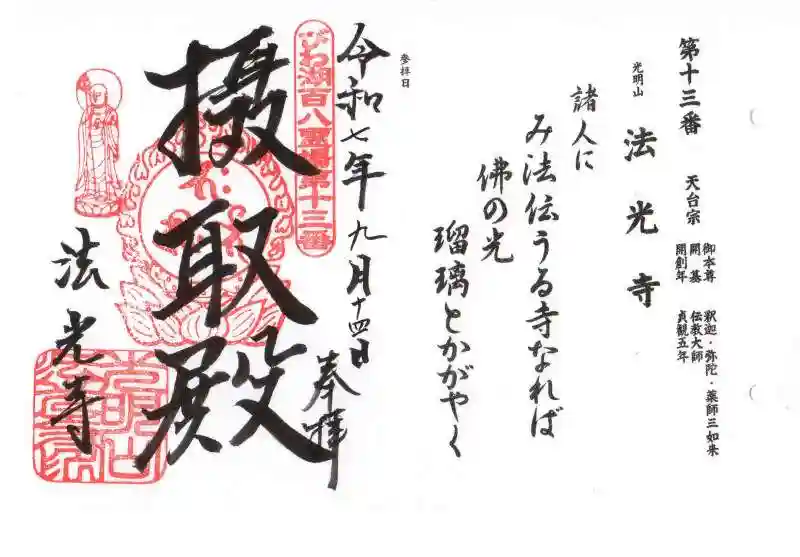 第十三番
天台宗
御本尊 釈迦・弥陀・薬師三如来
開基 伝教大師
開創年 貞観五年
光明山
法光寺
諸人に
み法伝うる寺なれば
佛の光
瑠璃とかがやく
参拝日
令和七年九月十四日
奉拝
びわ湖百八霊場第十三番
摂取殿
法光寺